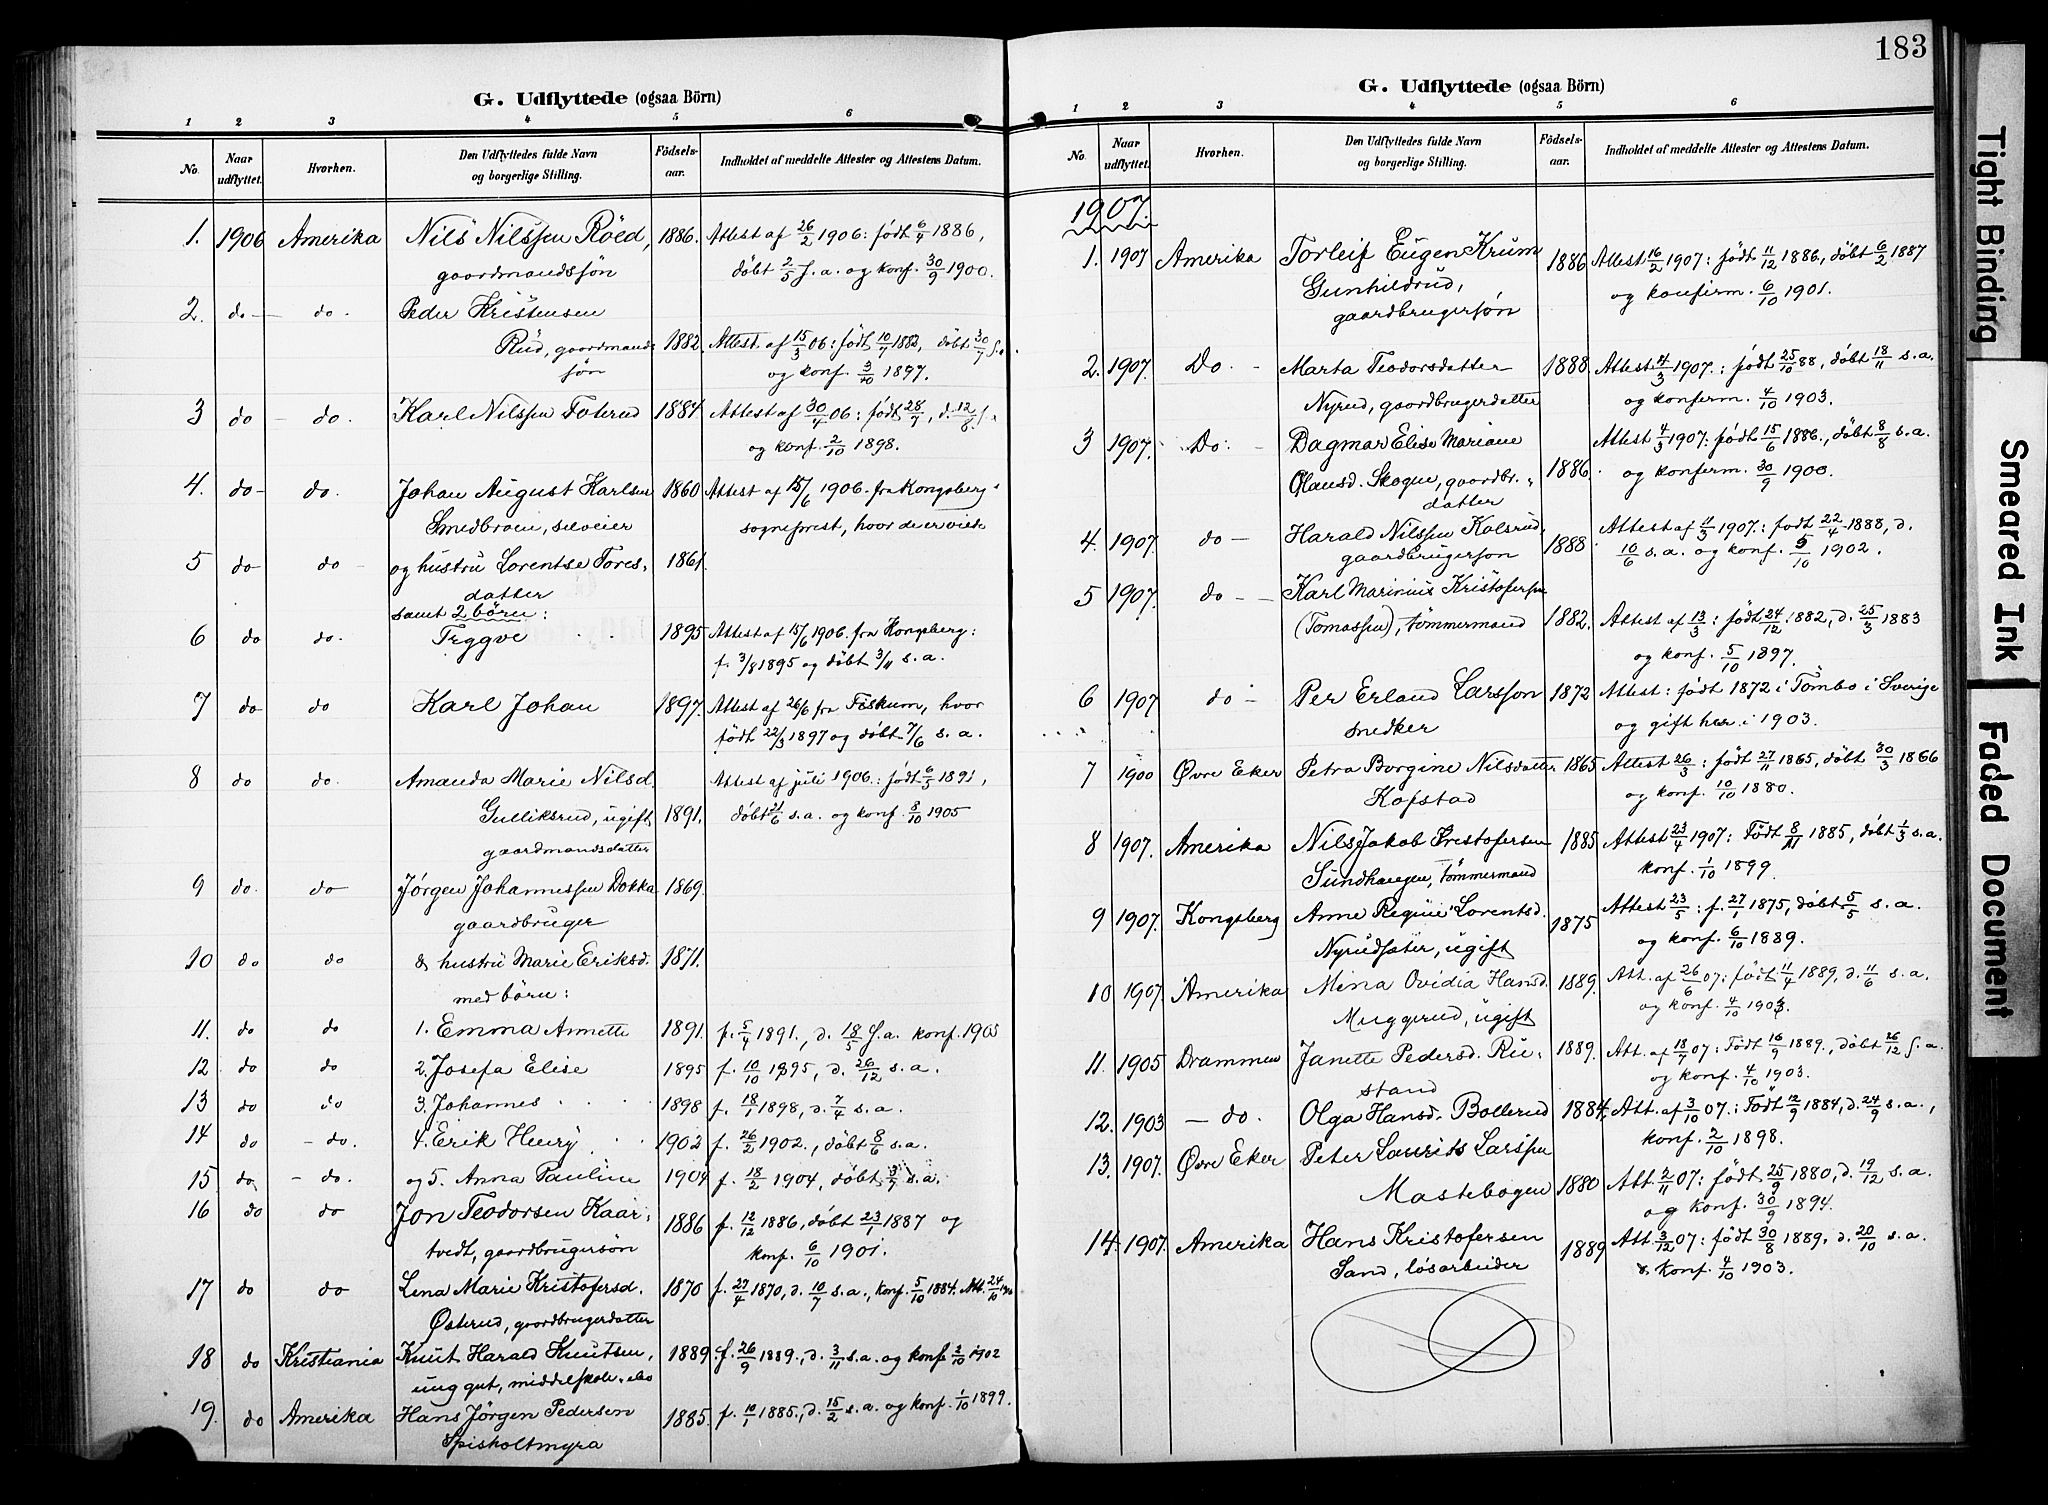 G. Udflyttede (ogsaa Börn)
1 2 3 4 5 6
No. Naar udflyttet. Hvorhen. Den Udflyttedes fulde Navn og borgerlige Stilling. Födselsaar. Indholdet af meddelte Attester og Attestens Datum.
1. 1906 Amerika Nils Nilssen Röed, 1886. Attest af 26/2 1906: født 6/4 1886,
gaardmandssøn døbt 2/5 s.a. og konf. 30/9 1900.
2. do – do. Peder Kristensen
Rud, gaardmands- 1882. Attest af 15/3 06: født 10/7 1882, døbt 30/7 s.a.
søn og konf. 3/10 1897.
3 do – do. Karl Nilssen Foterud 1884. Attest af 30/4 06: født 28/7, d. 12/8 s.a.
og konf. 2/10 1898.
4. do – do. Johan August Karlsen 1860 Attest af 15/6 1906. fra Kongsberg
Smedbroen, selveier sogneprest, hvor de er viede
5 do – do – og hustru Lorentse Tores- 1861.
datter
samt 2 börn:
6 do do. Tryggve 1895 Attest af 15/6 1906. fra Kongsberg:
f. 3/8 1895 og døbt 3/11 s.a.
7 do do Karl Johan 1897. Attest af 26/6 fra Fiskum, hvor
født 22/3 1897 og døbt 7/6 s.a.
8 do do. Amanda Marie Nilsd. Attest af juli 1906.: født 6/5 1891,
Gulliksrud, ugift 1891. døbt 21/6 s.a. og konf. 8/10 1905
gaardmandsdatter
9 do. do Jörgen Johannessen Dokka 1869.
gaardbruger
10 do do & hustru Marie Eriksd. 1871.
med börn:
11. do do 1. Emma Annette 1891. f. 5/4 1891., d. 18/5 s.a. konf. 1905
12 do do 2. Josefa Elise 1895 f. 10/10 1895, d. 26/12 s.a.
13 do do 3. Johannes 1898 f. 18/1 1898, d. 7/4 s.a.
14 do – do. 4. Erik Henry 1902 f. 26/2 1902., døbt 8/6 s.a.
15 do – do. og 5. Anna Pauline 1904 f. 18/2 1904, døbt 3/7 s.a.
16 do do Jon Teodorsen Kaar- 1886 f. 12/12 1886, døbt 23/1 1887 og
tvedt, gaardbrugersøn konf. 6/10 1901.
17 do do Lina Marie Kristofersd. 1870 f. 27/4 1870, d. 10/7 s.a., konf. 5/10 1884. Att. 24/10 1906
Østerud, gaardbrugerdatter
18 do Kristiania Knut Harald Knutsen, 1889. f. 26/9 1889., d. 3/11 s.a. og konf. 2/10 1902
ung gut, middelskole.
19. do Amerika Hans Jörgen Pedersen 1885. f. 10/1 1885., d. 15/2 s.a. og konf. 1/10 1899.
Spisholtmyra
183
G. Udflyttede (ogsaa Börn)
1 2 3 4 5 6
No. Naar udflyttet. Hvorhen. Den Udflyttedes fulde Navn og borgerlige Stilling. Födselsaar. Indholdet af meddelte Attester og Attestens Datum.
1907.
1. 1907 Amerika Torleif Eugen Krum 1886 Attest 16/2 1907: født 11/12 1886, døbt 6/2 1887
Gunhildrud, og konfirm. 6/10 1901.
gaardbrugersøn
2. 1907. Do. – Marta Teodorsdatter 1888. Attest 4/3 1907.: født 25/10 88, døbt 18/11 s.a.
Nyrud, gaardbrugerdatter og konferm. 4/10 1903.
3 1907. Do: – Dagmar Elise Mariane Attest 4/3 1907: født 15/6 1886., døbt 8/8 s.a.
Olausd. Skogen, gaardbr.- 1886. og konferm. 30/9 1900.
datter
4. 1907. do – Harald Nilssen Kolsrud, Attest af 11/3 1907: født 22/4 1888, d.
gaardbrugerson 1888 10/6 s.a. og konf. 5/10 1902.
5 1907. do – – Karl Marinius Kristofersen
(Tomassen), tømmermand 1882. Attest af 13/3: født 24/12 1882, d. 25/3 1883
og konf. 5/10 1897.
6 1907 do – Per Erland Larsson 1872 Attest: født 1872 i Tombo i Sverige
snedker og gift her i 1903.
7 1900 Øvre Eker Petra Borgine Nilsdatter 1865 Attest 26/3: født 27/11 1865, døbt 30/3 1866
Kopstad og konf. 10/10 1880.
8 1907. Amerika Nils Jakob Kristofersen 1885 Attest 23/4 1907: Født 8/1 1885, døbt 1/3 s.a.
Sundhaugen, tömmermand konf. 1/10 1899.
9 1907. Kongsberg Anne Regine Lorentsd. 1875 Attest 23/5: f. 27/1 1875, døbt 5/5 s.a.
Nyrudsæter, ugift og konf. 6/10 1889.
10 1907. Amerika Mina Ovidia Hansd. 1889. Att. af 26/6 07: født 11/4 1889, d. 11/6 s.a.
Muggerud, ugift og konf. 4/10 1903.
11. 1905 Drammen Janette Pedersd. Ru- 1889. Att. af 18/7 07: Født 16/9 1889., døbt 26/12 s.a.
stand og konf. 4/10 1903.
12. 1903 – do. Olga Hansd. Bollerud 1884. Att. af 3/10 07: Født 12/9 1884, d. 24/9 s.a.,
konf. 2/10 1898.
13. 1907. Øvre Eker Peter Laurits Larssen
Mastebogen 1880 Att. 2/11 07: født 25/9 1880, d. 19/12 s.a.
og konf. 30/9 1894.
14. 1907. Amerika Hans Kristofersen 1889 Att. 3/12 07: født 30/8 1889, d. 20/10 s.a.
Sand, løsarbeider & konf. 4/10 1903.
Tight Binding
Smeared Ink
Faded Document